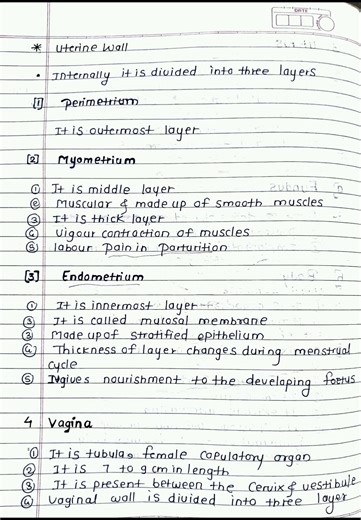 DATE
* Uterine wall
• Internally it is divided into three layers
[1] Perimetrium
It is outermost layer
[2] Myometrium
① It is middle layer
② Muscular & made up of smooth muscles
③ It is thick layer
④ Vigour contraction of muscles
⑤ labour pain in parturition
[3] Endometrium
① It is innermost layer
③ It is called mucosal membrane
③ Made up of stratified epithelium
④ Thickness of layer changes during menstrual
cycle
⑤ gives nourishment to the developing foetus
4 Vagina
① It is tubular female copulatory organ
② It is 7 to 9 cm in length
③ It is present between the Cervix & vestibule
④ Vaginal wall is divided into three layer